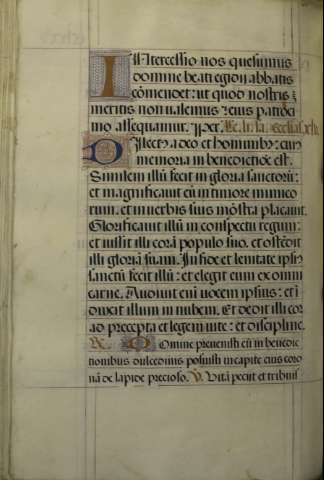 Intercessio nos quesumus
domine beati egidii abbatis
cōmendet: ut quod nostris
meritis non ualemus eius patroci
nio assequamur. Per. Lc. li. sa.
Dilectus a deo et hominibꝰ: cuiꝰ
memoria in benedictiōe est.
Similem illū fecit in gloria sanctorū:
et magnificauit eū in timore inimico
rum. et in uerbis suis mōstra placauit.
Glorificauit illū in conspectu regum:
et iussit illi corā populo suo. et ostēdit
illi gloriā suam. In fide et lenitate ipsiꝰ
sanctū fecit illū: et elegit eum ex omni
carne. Audiuit eni uocem ipsius: et ī
duxit illum in nubem. Et dedit illi cor
ad precepta et legem uite: et discipline.
R. Domine preuenisti eū in benedic
tionibus dulcedinis posuisti in capite eius coro
nā de lapide precioso. V. Vitā peciit et tribuis